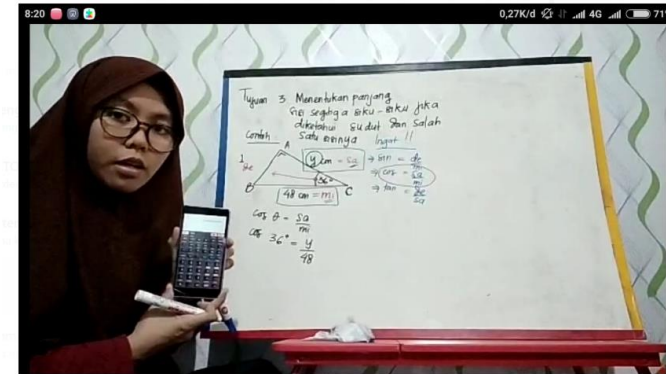 8:20
0,27K/d 4G 71
Tujuan 3. Menentukan panjang
sisi segitiga siku-siku jika
diketahui sudut dan salah
satu sisinya
Contoh:
Ingat !!
A
y cm = sa
→ sin = de/mi
→ cos = sa/mi
→ tan = de/sa
de
36°
B
C
48 cm = mi
cos θ = sa/mi
cos 36° = y/48